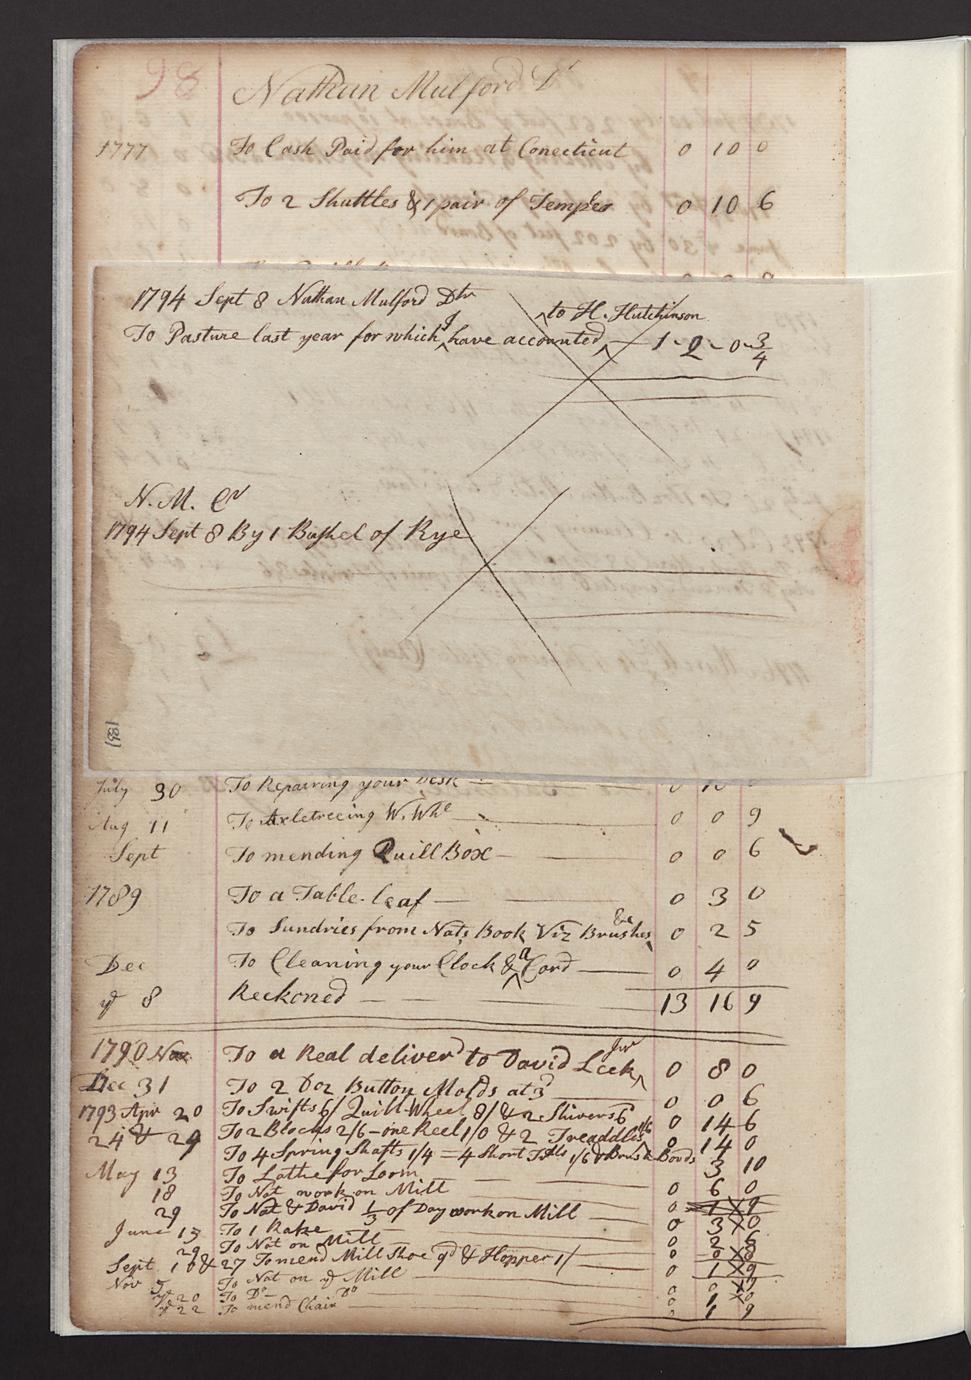 98
Nathan Mulford Dr
1777 To Cash Paid for him at Conecticut 0 10 0
To 2 Shuttles & 1 pair of Temples 0 10 6
1794 Sept 8 Nathan Mulford Dtr to H. Hutchinson
To Pasture last year for which I have accounted — 1 - 2 - 0 - 3/4
N. M. Cr
1794 Sept 8 By 1 Bushel of Rye
July 30 To Repairing your Desk — 0 10
Aug 11 To Axletreeing W. Whl — 0 0 9
Sept To mending Quill Box — 0 0 6
1789 To a Table-leaf — 0 3 0
To Sundries from Nats Book Viz Brushes &c 0 2 5
Dec To Cleaning your Clock & a Cord — 0 4 0
yd 8 Reckoned — 13 16 9
1790 Nov To a Real deliverd to David Leek Jur 0 8 0
Dec 31 To 2 Doz Button Molds at 3d — 0 0 6
1793 Apr 20 To Swifts 6/ Quill Wheel 8/ & 2 Shivers 6d 0 14 6
24 & 29 To 2 Blocks 2/6 - one Reel 1/0 & 2 Treaddles 1/6 0 14 0
To 4 Spring Shafts 1/4 = 4 Short 1/6 & Brush Bords 3 10
May 13 To Lathe for Loom — 0 6 0
18 To Nat work on Mill
29 To Nat & David 1/3 of Day work on Mill — 0 3 0
June 13 To 1 Rake
29 To Nat on Mill
Sept 10 & 27 To mend Mill Shoe 9d & Hopper 1/ — 0 1 9
Nov 5 To Nat on yd Mill
yd 20 To Do Do
yd 22 To mend Chair — 0 1 9